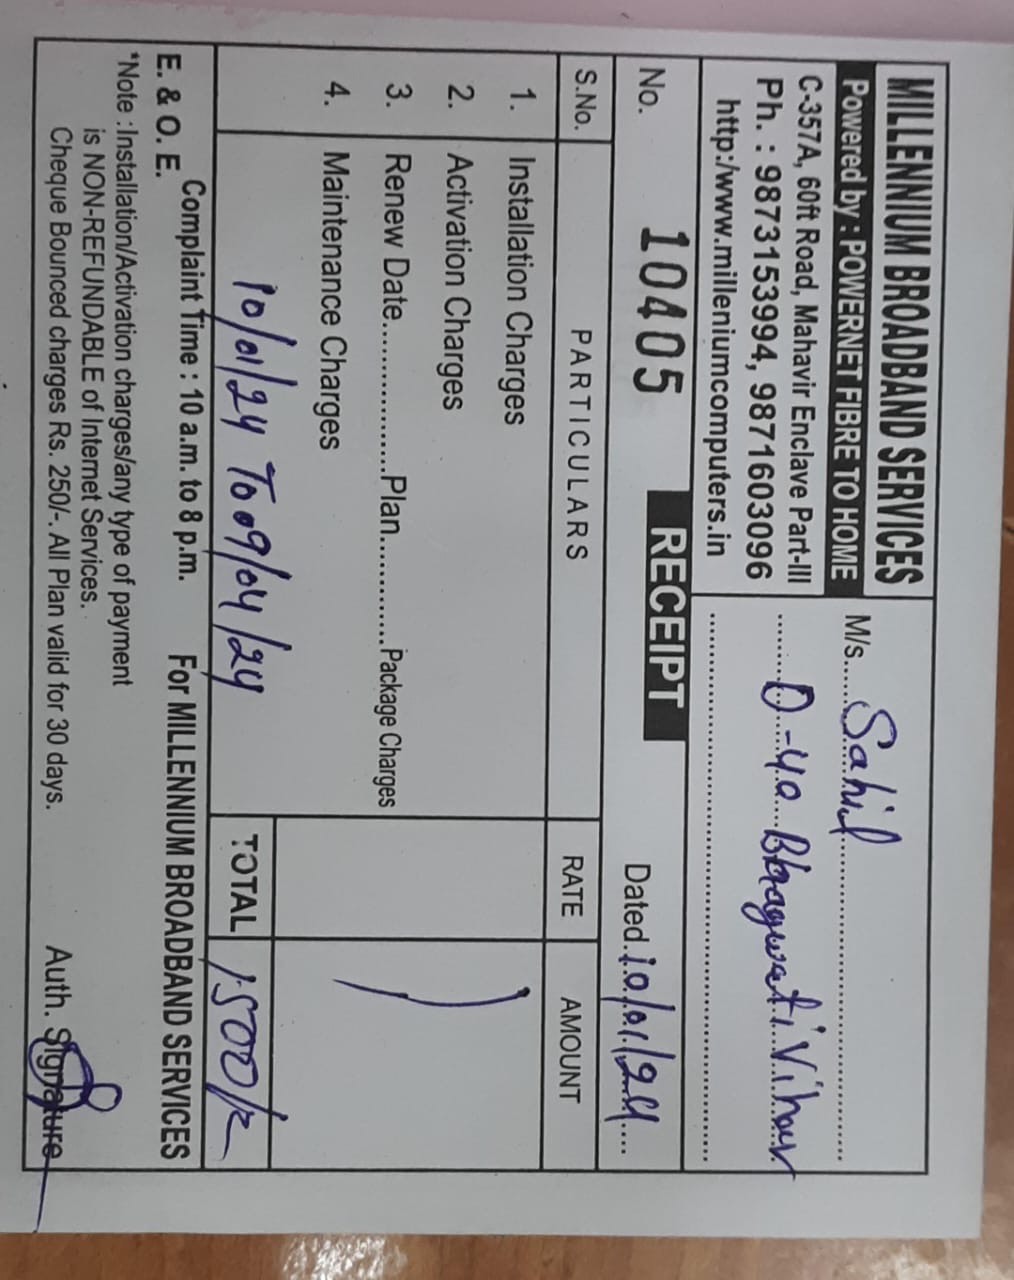 MILLENNIUM BROADBAND SERVICES
Powered by : POWERNET FIBRE TO HOME
C-357A, 60ft Road, Mahavir Enclave Part-III
Ph. : 9873153994, 9871603096
http:/www.milleniumcomputers.in
M/s. Sahil
D-40 Bhagwati Vihar
No. 10405 RECEIPT Dated 10/01/24
S.No. PARTICULARS RATE AMOUNT
1. Installation Charges
2. Activation Charges
3. Renew Date...............Plan............Package Charges
4. Maintenance Charges
10/01/24 To 09/04/24 TOTAL 1500/-
E. & O. E. Complaint Time : 10 a.m. to 8 p.m. For MILLENNIUM BROADBAND SERVICES
*Note : Installation/Activation charges/any type of payment
is NON-REFUNDABLE of Internet Services.
Cheque Bounced charges Rs. 250/-. All Plan valid for 30 days. Auth. Signature